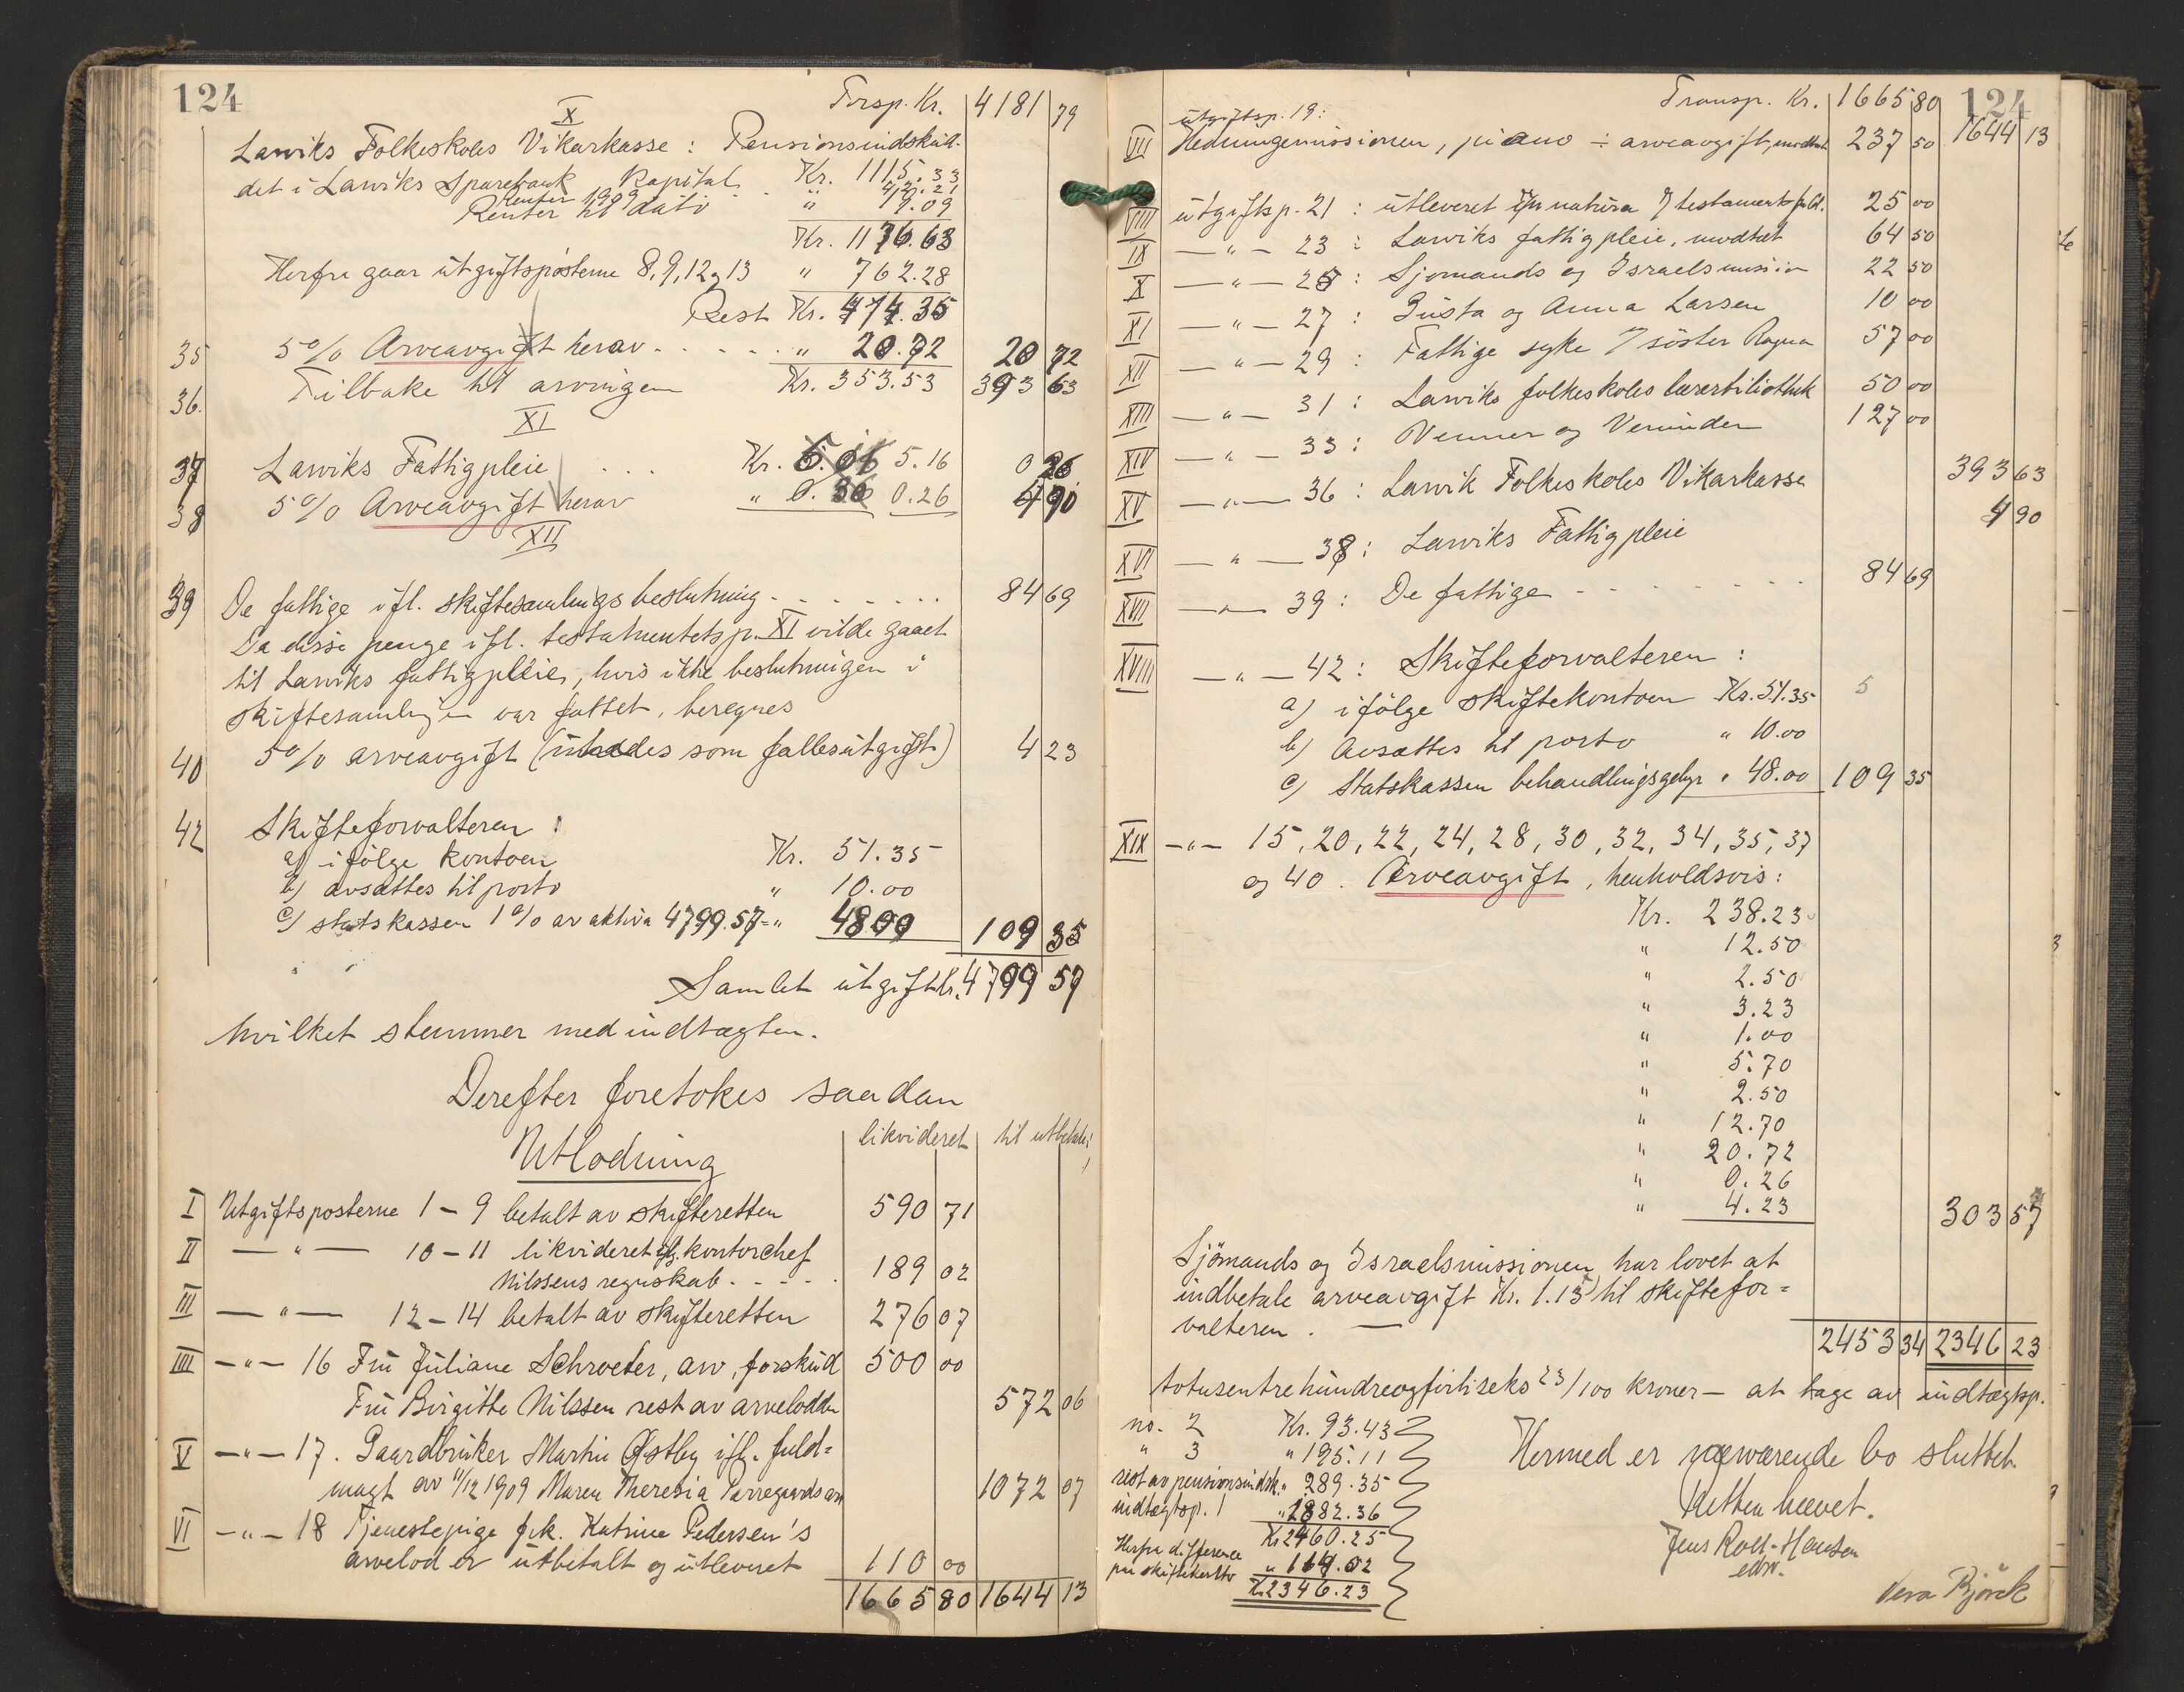 124
Trsp. Kr. 4181 79
X
Larviks Folkeskoles Vikarkasse: Pensionsindskud-
det i Larviks Sparebank Kapital Kr. 1115.33
Renter 1909 " 42.21
Renter til dato " 9.09
Kr. 1176.63
Herfra gaar utgiftsposterne 8, 9, 12, 13 " 762.28
Rest Kr. 414.35
35 5% Arveavgift herav . . . . . " 20.72 20 72
36. Tilbake til arvingen Kr. 353.53 393 63
XI
37 Larviks Fattigpleie . . . Kr. 5.16 0 26
38 5% Arveavgift herav " 0.26 4 90
XII
39 De fattige ifl. skiftesamlings beslutning . . . . . . . . 84 69
Da disse penge ifl. testamentets p. XI vilde gaaet
til Larviks fattigpleie, hvis ikke beslutningen i
skiftesamlingen var fattet, beregnes
40 5% arveavgift (utredes som fællesutgift) 4 23
42 Skifteforvalteren:
a) ifølge kontoen Kr. 51.35
b) avsættes til porto " 10.00
c) statskassen 1% av aktiva 4799.57 = " 48.00 109 35
Samlet utgift kr. 4799 57
hvilket stemmer med indtægten.
Derefter foretokes saadan
Utlodning
likvideret til utbetaling
I Utgiftsposterne 1 - 9 betalt av skifteretten 590 71
II — " — 10 - 11 likvideret ifl. kontorchef
Nilssens regnskab . . . . . 189 02
III — " — 12 - 14 betalt av skifteretten 276 07
IIII — " — 16 Fru Juliane Schroeter, arv, forskud 500 00
Fru Birgitte Nilssen rest av arvelodden 572 06
V — " — 17. Gaardbruker Martin Østby ifl. fuld-
magt av 11/12 1909 Maren Theresia 1072 07
VI — " — 18 Tjenestepige frk. Katrine Pedersen's
arvelod er utbetalt og utleveret 110 00
1665 80 1644 13
124
Transp. Kr. 1665 80 1644 13
utgiftsp. 19:
VII Hedningemissionen, piano ÷ arveavgift, modtat 237 50
VIII utgiftsp. 21: utleveret in natura 25 00
IX — " — 23: Larviks fattigpleie, modtat 64 50
X — " — 25: Sjømands og Israelsmission 22 50
XI — " — 27: Gusta og Anna Larsen 10 00
XII — " — 29: Fattige syke søster Ragna 57 00
XIII — " — 31: Larviks folkeskoles lærerbibliothek 50 00
XIV — " — 33: Venner og Veninder 127 00
XV — " — 36: Larvik Folkeskoles Vikarkasse 393 63
XVI — " — 38: Larviks Fattigpleie 4 90
XVII — " — 39: De fattige . . . . . . . 84 69
XVIII — " — 42: Skifteforvalteren:
a) ifølge skiftekontoen Kr. 51.35 5
b) Avsættes til porto " 10.00
c) Statskassen behandlingsgebyr " 48.00 109 35
XIX — " — 15, 20, 22, 24, 28, 30, 32, 34, 35, 37
og 40. Arveavgift, henholdsvis:
Kr. 238.23
" 12.50
" 2.50
" 3.23
" 1.00
" 5.70
" 2.50
" 12.70
" 20.72
" 0.26
" 4.23 303 57
Sjømands og Israelsmissionen har lovet at
indbetale arveavgift Kr. 1.13 til skiftefor-
valteren. —
2453 34 2346 23
totusentrehundreogførtiseks 23/100 kroner — at tage av indtægtsp.
no. 2 Kr. 93.43
" 3 " 195.11
rest av pensionsindsk. " 289.35
indtægtsp. 1 " 1882.36
Kr. 2460.25
Herfra difference
paa skiftekonto " 114.02
Kr. 2346.23
Hermed er nærværende bo sluttet.
Retten hævet.
Jens Roll-Hansen
edsv.
Vera Bjørck